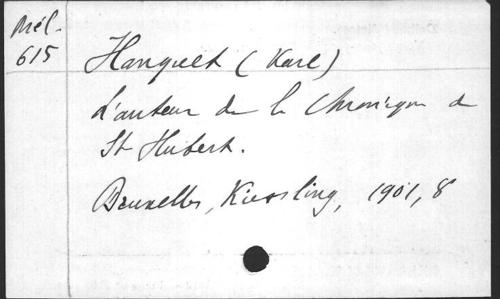 Mél.
615
Hanquet (Karl)
L'auteur de la Chronique de
St Hubert.
Bruxelles, Kiessling, 1901, 8